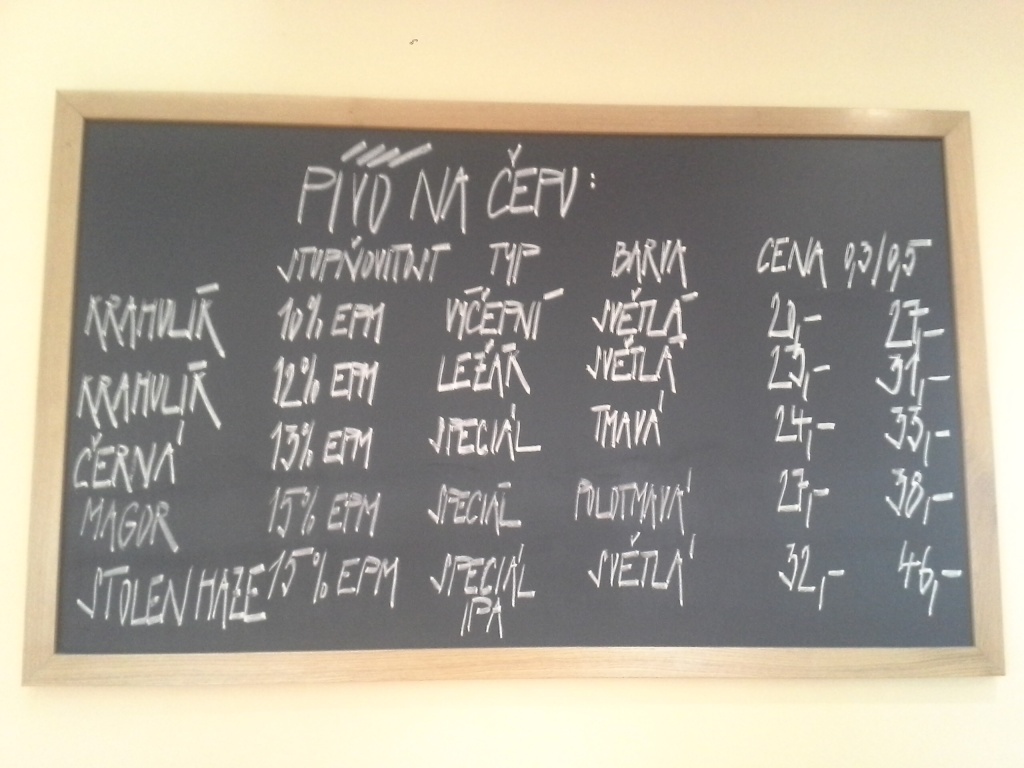 PIVO NA ČEPU:
STUPŇOVITOST TYP BARVA CENA 0,3/0,5
KRAHULÍK 10% EPM VÝČEPNÍ SVĚTLÁ 20,- 27,-
KRAHULÍK 12% EPM LEŽÁK SVĚTLÁ 23,- 31,-
ČERNÁ 13% EPM SPECIÁL TMAVÁ 24,- 33,-
MAGOR 15% EPM SPECIÁL POLOTMAVÁ 27,- 38,-
STOLEN HAZE 15% EPM SPECIÁL SVĚTLÁ 32,- 46,-
IPA